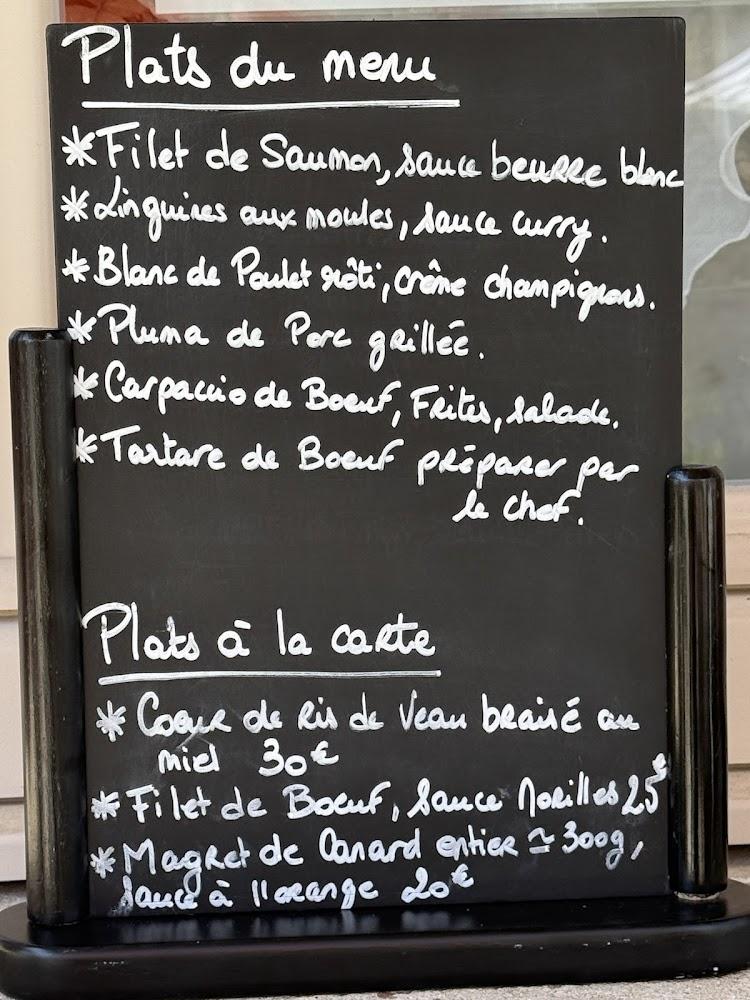 Plats du menu
* Filet de Saumon, sauce beurre blanc
* Linguines aux moules, sauce curry.
* Blanc de Poulet rôti, crème champignons.
* Pluma de Porc grillée.
* Carpaccio de Boeuf, Frites, salade.
* Tartare de Boeuf préparer par
le chef.
Plats à la carte
* Coeur de Ris de Veau braisé au
miel 30€
* Filet de Boeuf, sauce Morilles 25€
* Magret de Canard entier ≃ 300g,
sauce à l'orange 20€